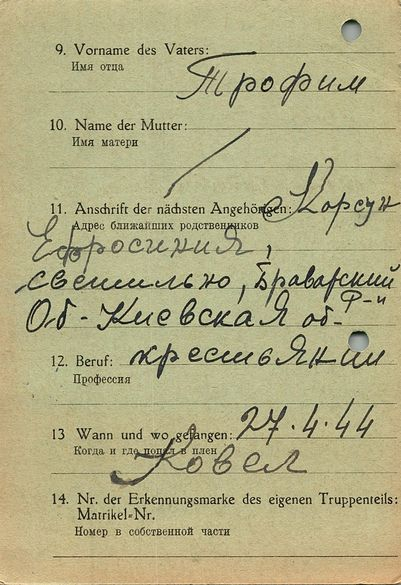 9. Vorname des Vaters:
Имя отца
Трофим
10. Name der Mutter:
Имя матери
11. Anschrift der nächsten Angehörigen: Корсун
Адрес ближайших родственников
Ефросиния,
светильно, Браварский
Р-н
Об-Киевская об-
12. Beruf: крестьянин
Профессия
13 Wann und wo gefangen: 27.4.44
Когда и где попал в плен
Ковел
14. Nr. der Erkennungsmarke des eigenen Truppenteils:
Matrikel-Nr.
Номер в собственной части